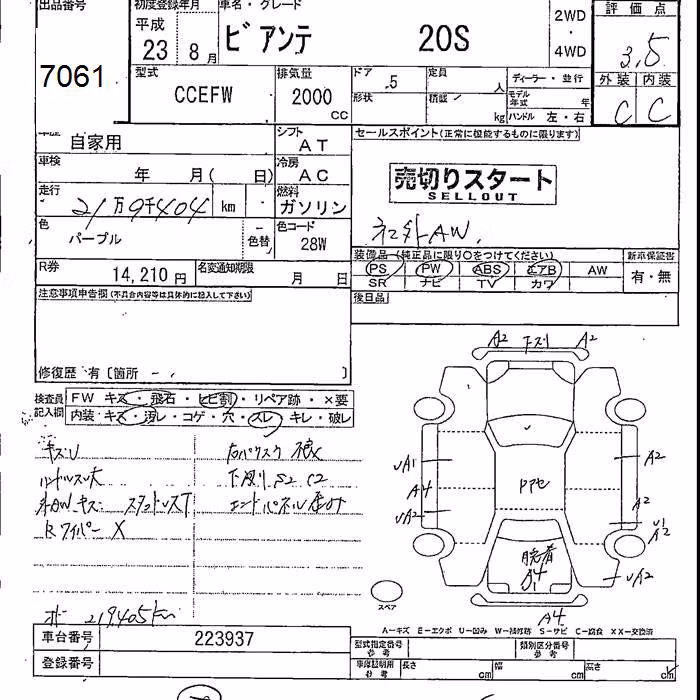 出品番号
7061
初度登録年月
平成
23 8月
車名・グレード
ビアンテ 20S
2WD
・
4WD
評価点
3.5
外装 内装
C C
型式
CCEFW
排気量
2000
CC
ドア .5
形状
定員 人
積載 kg
ディーラー・並行
モデル
年式 年
ハンドル 左・右
車歴 自家用
シフト
AT
車検 年 月( 日)
冷房
AC
走行 21万9千404 km
燃料
ガソリン
色
パープル
色替
色コード
28W
R券 14,210 円
名変通知期限 月 日
セールスポイント(正常に機能するものに限ります)
売切りスタート
SELLOUT
社外AW.
装備品(純正品に限り○をつけてください)
PS PW ABS エアB AW
SR ナビ TV カワ
新車保証書
有・無
後日品
注意事項申告欄(不具合内容等は具体的に記入して下さい)
修復歴 有〔箇所 〕
検査員
記入欄
FW キズ・飛石・ヒビ割・リペア跡・×要
内装:キズ・汚レ・コゲ・穴・スレ・キレ・破レ
キズU
ハンドルスレ大
下廻りS2 C2
Rワイパー X
219405km
A2 下スリ A2
UA1
A4
UA2
A2
A2
U1
A2
UA2
A4
A4
スペア
A―キズ E―エクボ U―凹み W―補修跡 S―サビ C―腐食 XX―交換済
車台番号 223937
登録番号
型式指定番号
参考
類別区分番号
参考
車庫証明用
参考
長さ cm 幅 cm 高さ cm